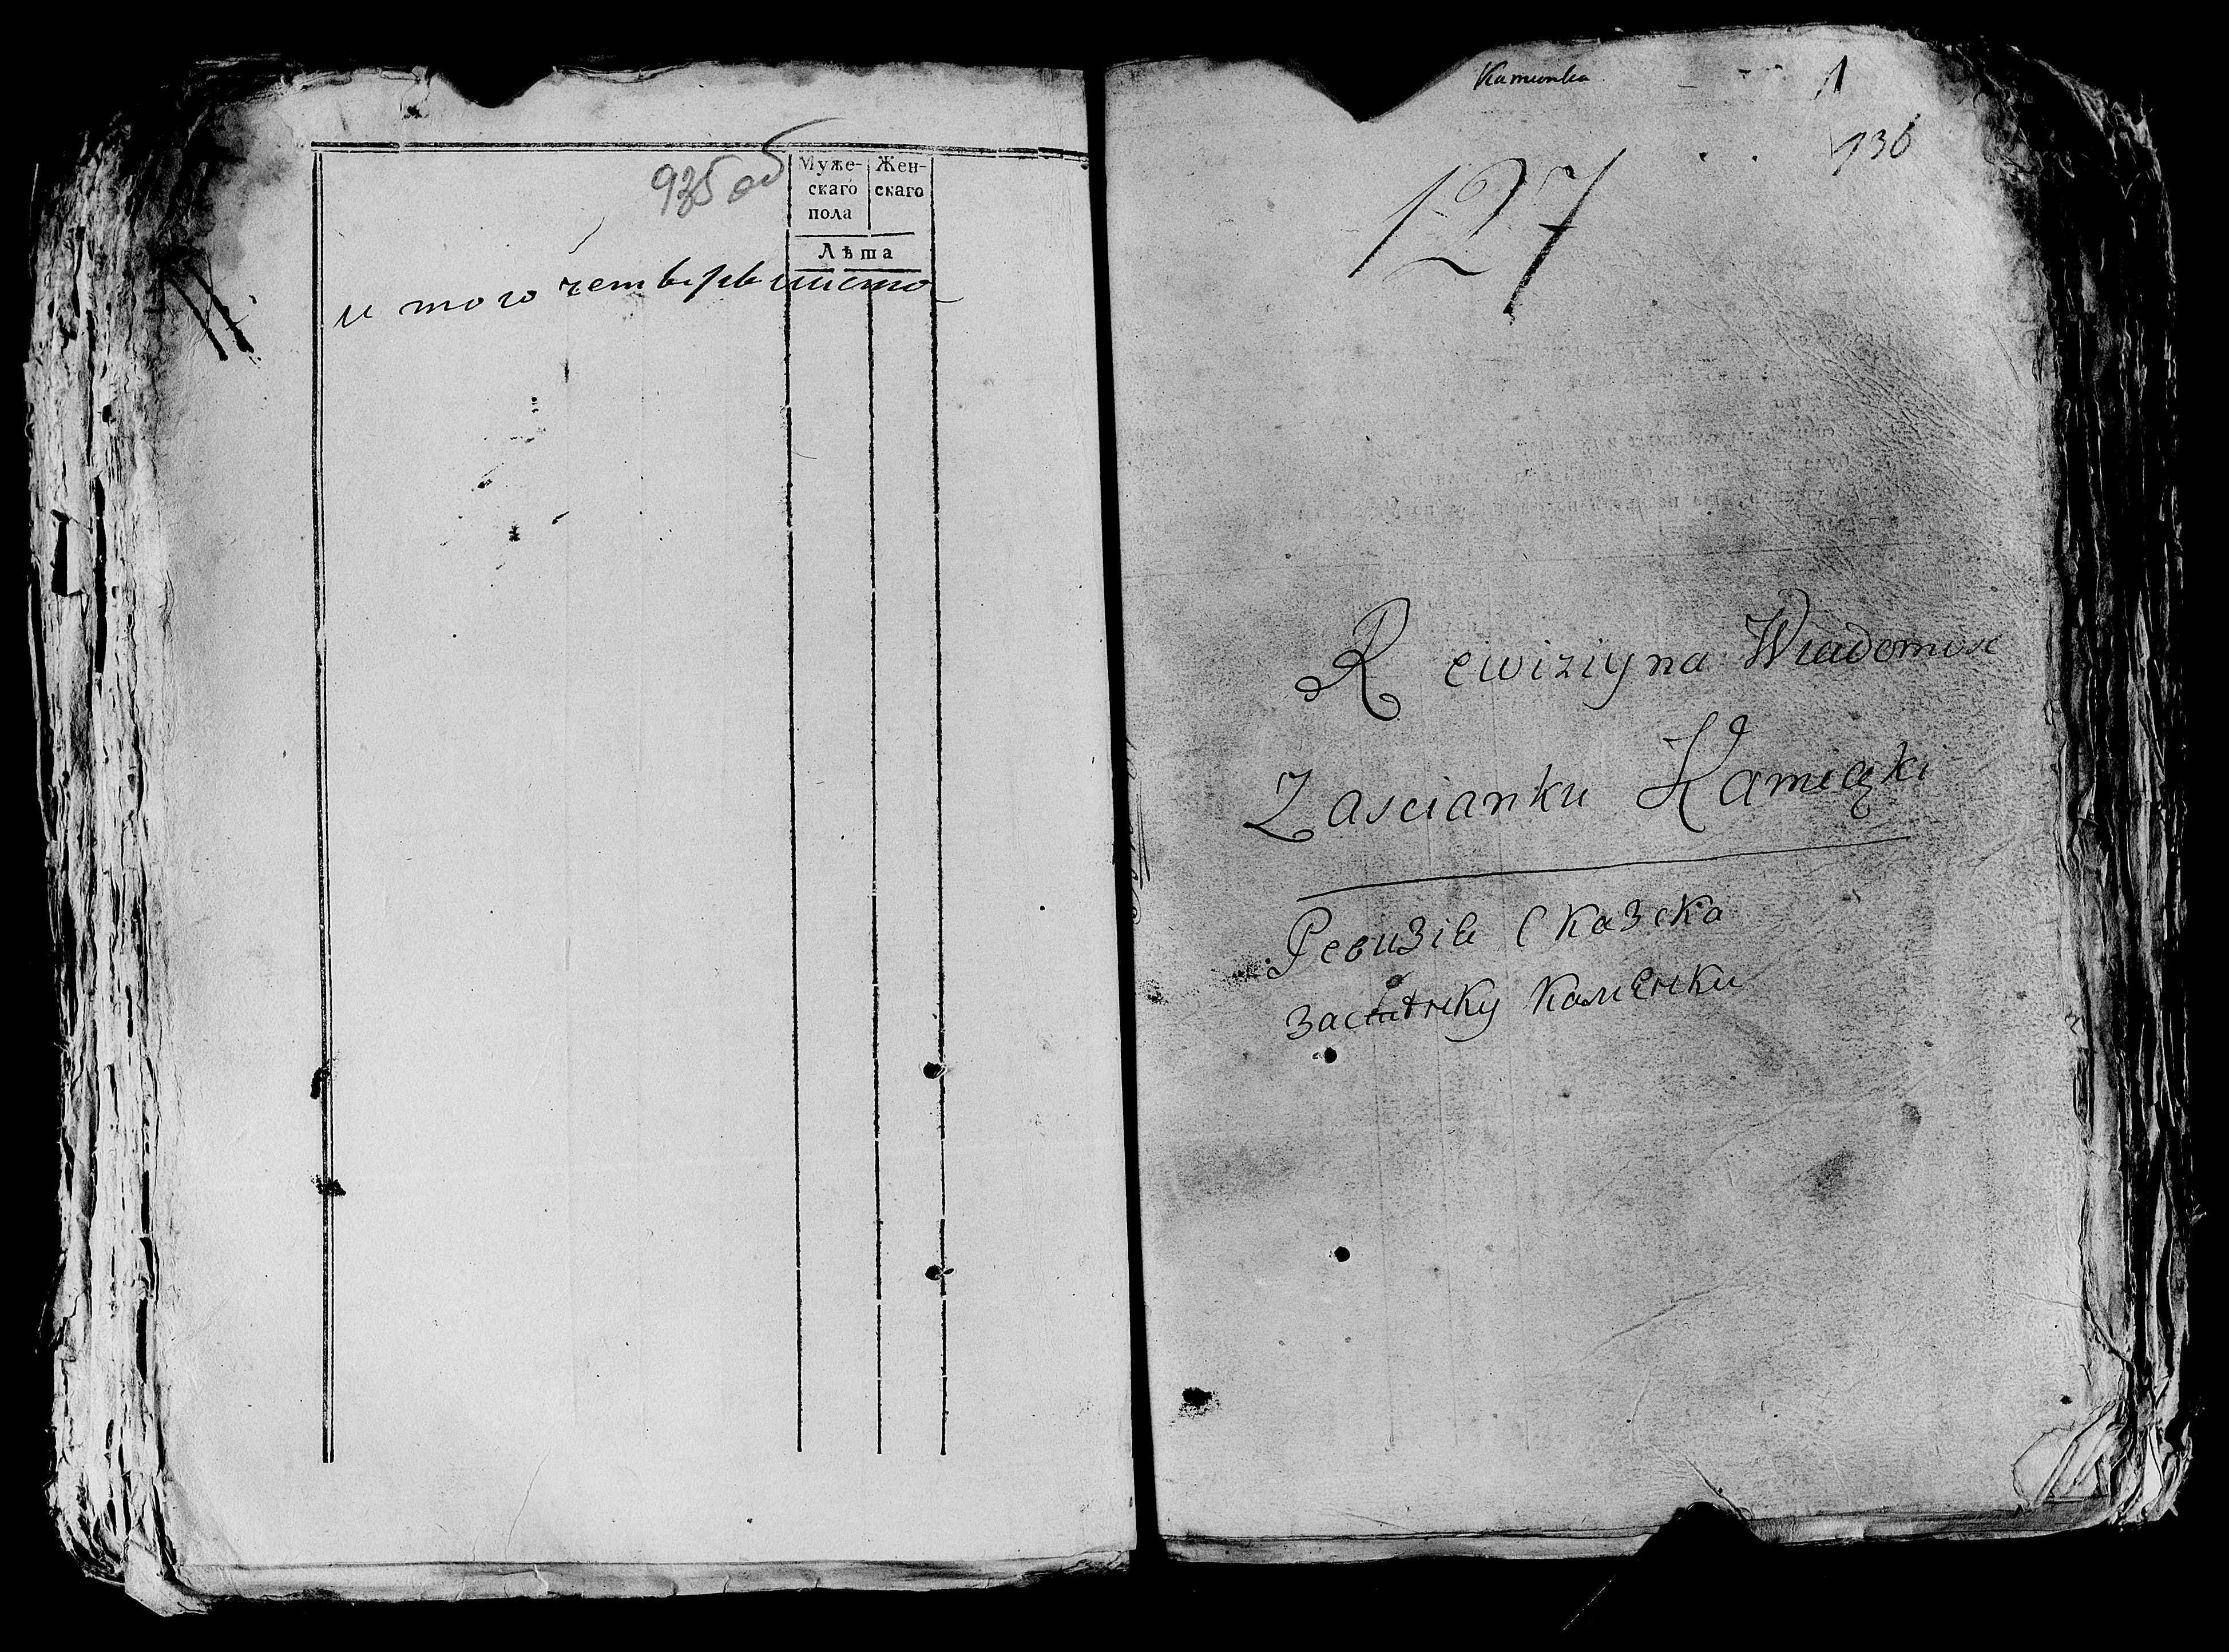 935 об
Муже-
скаго
пола
Жен-
скаго
Лѣта
и того четверы листа
Kamionka
1
936
127
Rewiziyna Wiadomosc
Zascianku Kamionki
Ревизіе Сказска
застѣнку Каменки